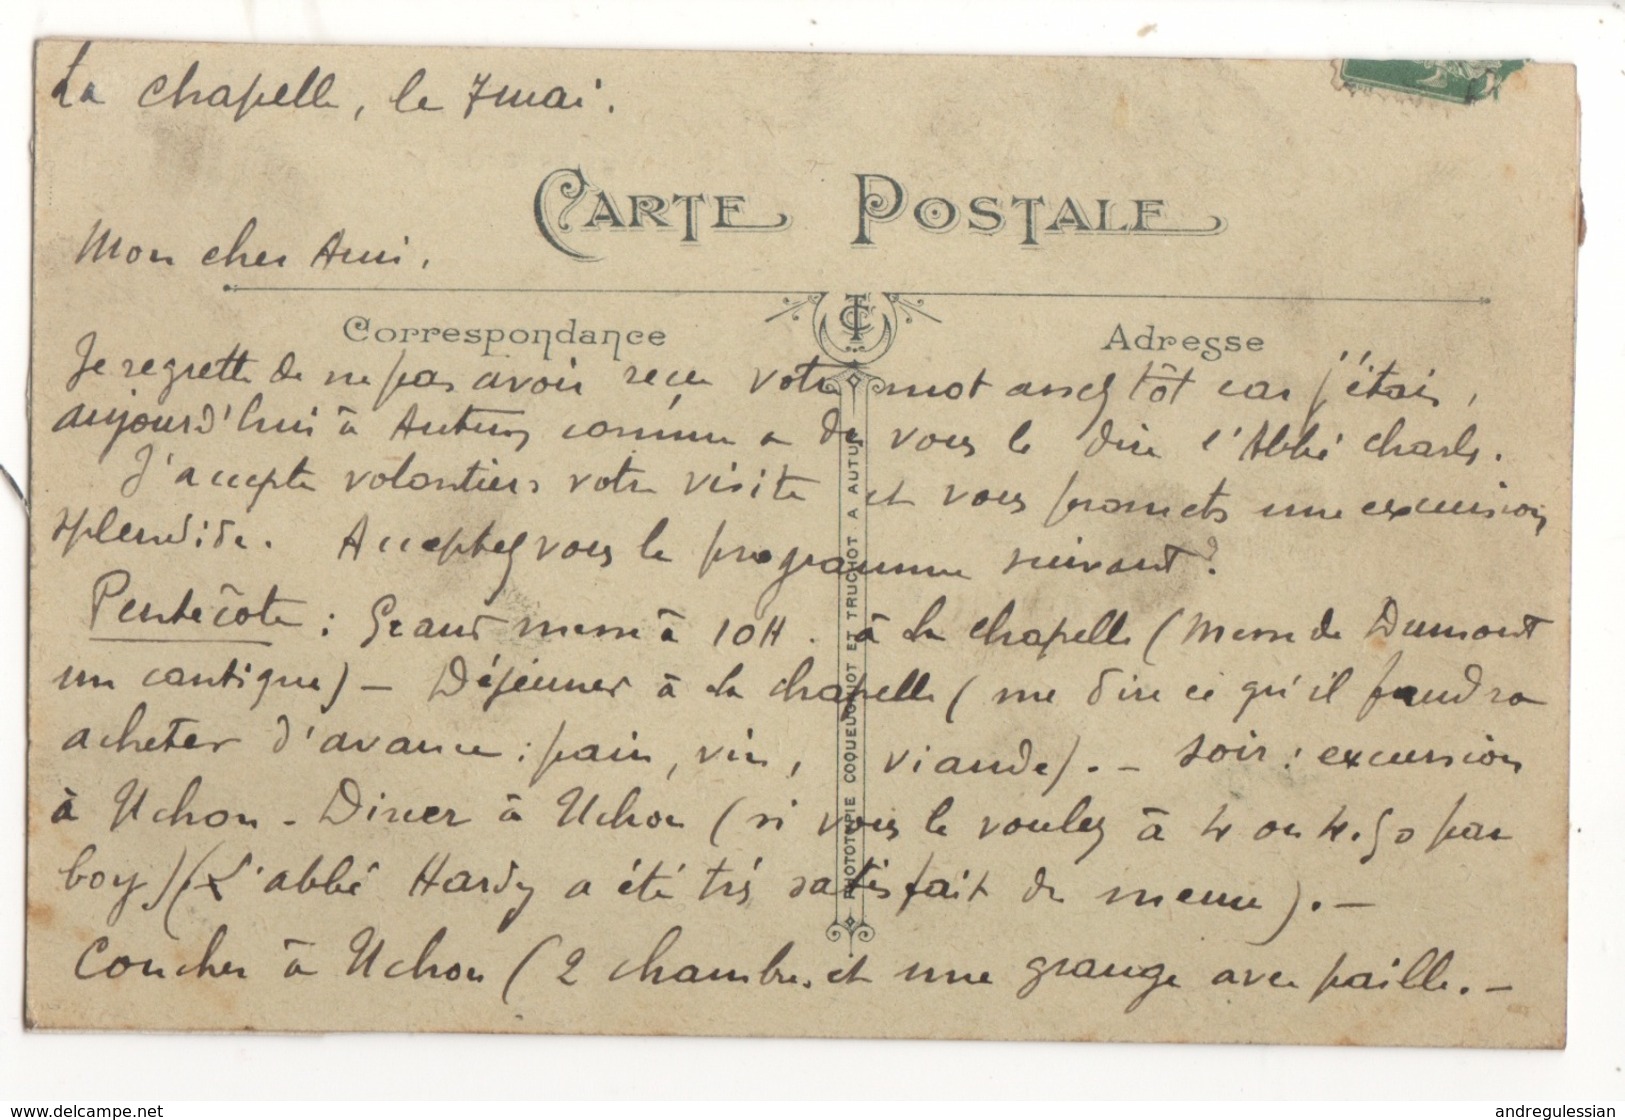 La Chapelle, le 7 mai.
CARTE POSTALE
Mon cher Ami,
Correspondance
Adresse
Je regrette de ne pas avoir reçu votre mot assez tôt car j'étais,
aujourd'hui à Autun, comme a dû vous le dire l'Abbé Charles.
J'accepte volontiers votre visite et vous promets une excursion
splendide. Acceptez vous le programme suivant?
Pentecôte : Grand messe à 10H. à la Chapelle (Messe de Dumont
un cantique) - Déjeuner à la Chapelle (me dire ce qu'il faudra
acheter d'avance : pain, vin, viande). - Soir : excursion
à Uchon - Diner à Uchon (si vous le voulez à 4 ou 4.50 par
boy) (L'abbé Hardy a été très satisfait du menu). -
Coucher à Uchon (2 chambres et une grange avec paille. -
PHOTOTYPIE COQUEUGNIOT ET TRUCHOT A AUTUN
www.delcampe.net
andregulessian